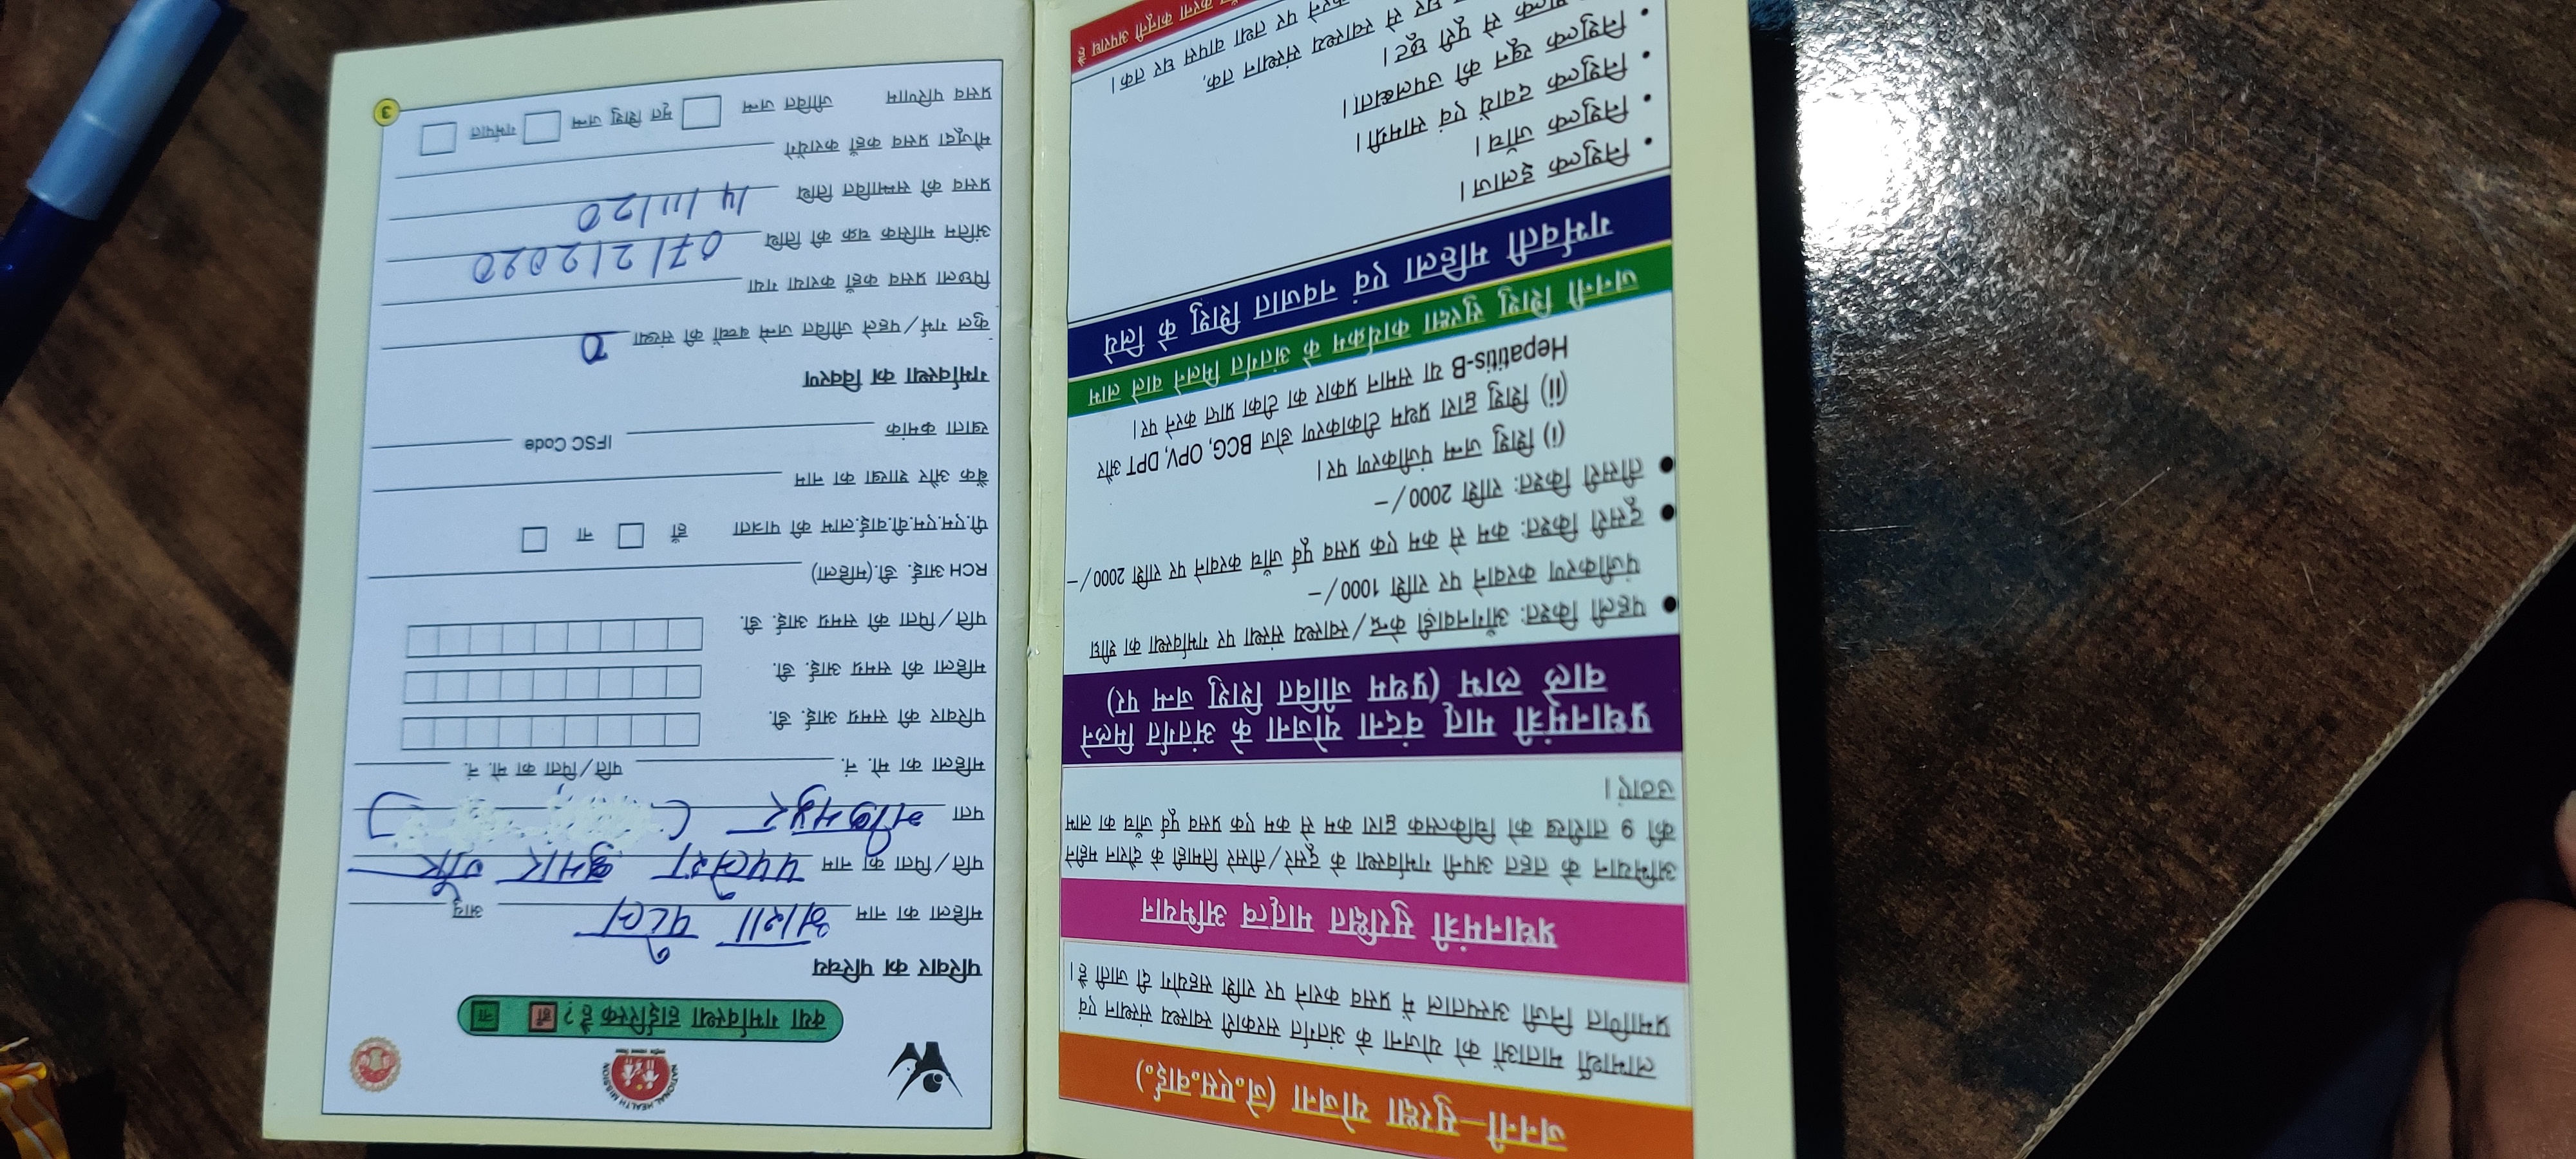 जननी–सुरक्षा योजना (जे.एस.वाई.)
लाभार्थी माताओं को योजना के अंतर्गत सरकारी स्वास्थ्य संस्थान एवं
प्रमाणित निजी अस्पताल में प्रसव कराने पर राशि सहयोग दी जाती है।
प्रधानमंत्री सुरक्षित मातृत्व अभियान
अभियान के तहत अपनी गर्भावस्था के दूसरे/तीसरे तिमाही के दौरान महीने
की 9 तारीख को चिकित्सक द्वारा कम से कम एक प्रसव पूर्व जाँच का लाभ
उठाएं।
प्रधानमंत्री मातृ वंदना योजना के अंतर्गत मिलने
वाले लाभ (प्रथम जीवित शिशु जन्म पर)
• पहली किश्तः आँगनवाड़ी केन्द्र/स्वास्थ्य संस्था पर गर्भावस्था का शीघ्र
पंजीकरण करवाने पर राशि 1000/–
• दूसरी किश्तः कम से कम एक प्रसव पूर्व जाँच करवाने पर राशि 2000/–
• तीसरी किश्तः राशि 2000/–
(i) शिशु जन्म पंजीकरण पर।
(ii) शिशु द्वारा प्रथम टीकाकरण डोज BCG, OPV, DPT और
Hepatitis-B या समान प्रकार का टीका प्राप्त करने पर।
जननी शिशु सुरक्षा कार्यक्रम के अंतर्गत मिलने वाले लाभ
गर्भवती महिला एवं नवजात शिशु के लिये
• निशुल्क इलाज।
• निशुल्क जाँच।
• निशुल्क दवायें एवं सामग्री।
• निशुल्क खून की उपलब्धता।
• शुल्क से पूरी छूट।
घर से स्वास्थ्य संस्थान तक,
करने पर तथा वापस घर तक।
करना कानूनी अपराध है
NATIONAL HEALTH MISSION
क्या गर्भावस्था हाईरिस्क है? हाँ ना
परिवार का परिचय
महिला का नाम आशा पटेल आयु
पति/पिता का नाम पपलेश कुमार गौर
पता भीकमपुर (
महिला का मो. नं. पति/पिता का मो. नं.
परिवार की समग्र आई. डी.
महिला की समग्र आई. डी.
पति/पिता की समग्र आई. डी.
RCH आई. डी.(महिला)
पी.एम.एम.वी.वाई.लाभ की पात्रता हाँ ना
बैंक और शाखा का नाम
खाता क्रमांक IFSC Code
गर्भावस्था का विवरण
कुल गर्भ/पहले जीवित जन्मे बच्चों की संख्या
पिछला प्रसव कहाँ कराया गया
अंतिम मासिक चक्र की तिथि 07/2/2020
प्रसव की सम्भावित तिथि 14/11/20
मौजूदा प्रसव कहाँ करायेंगे
प्रसव परिणाम जीवित जन्म मृत शिशु जन्म गर्भपात
3